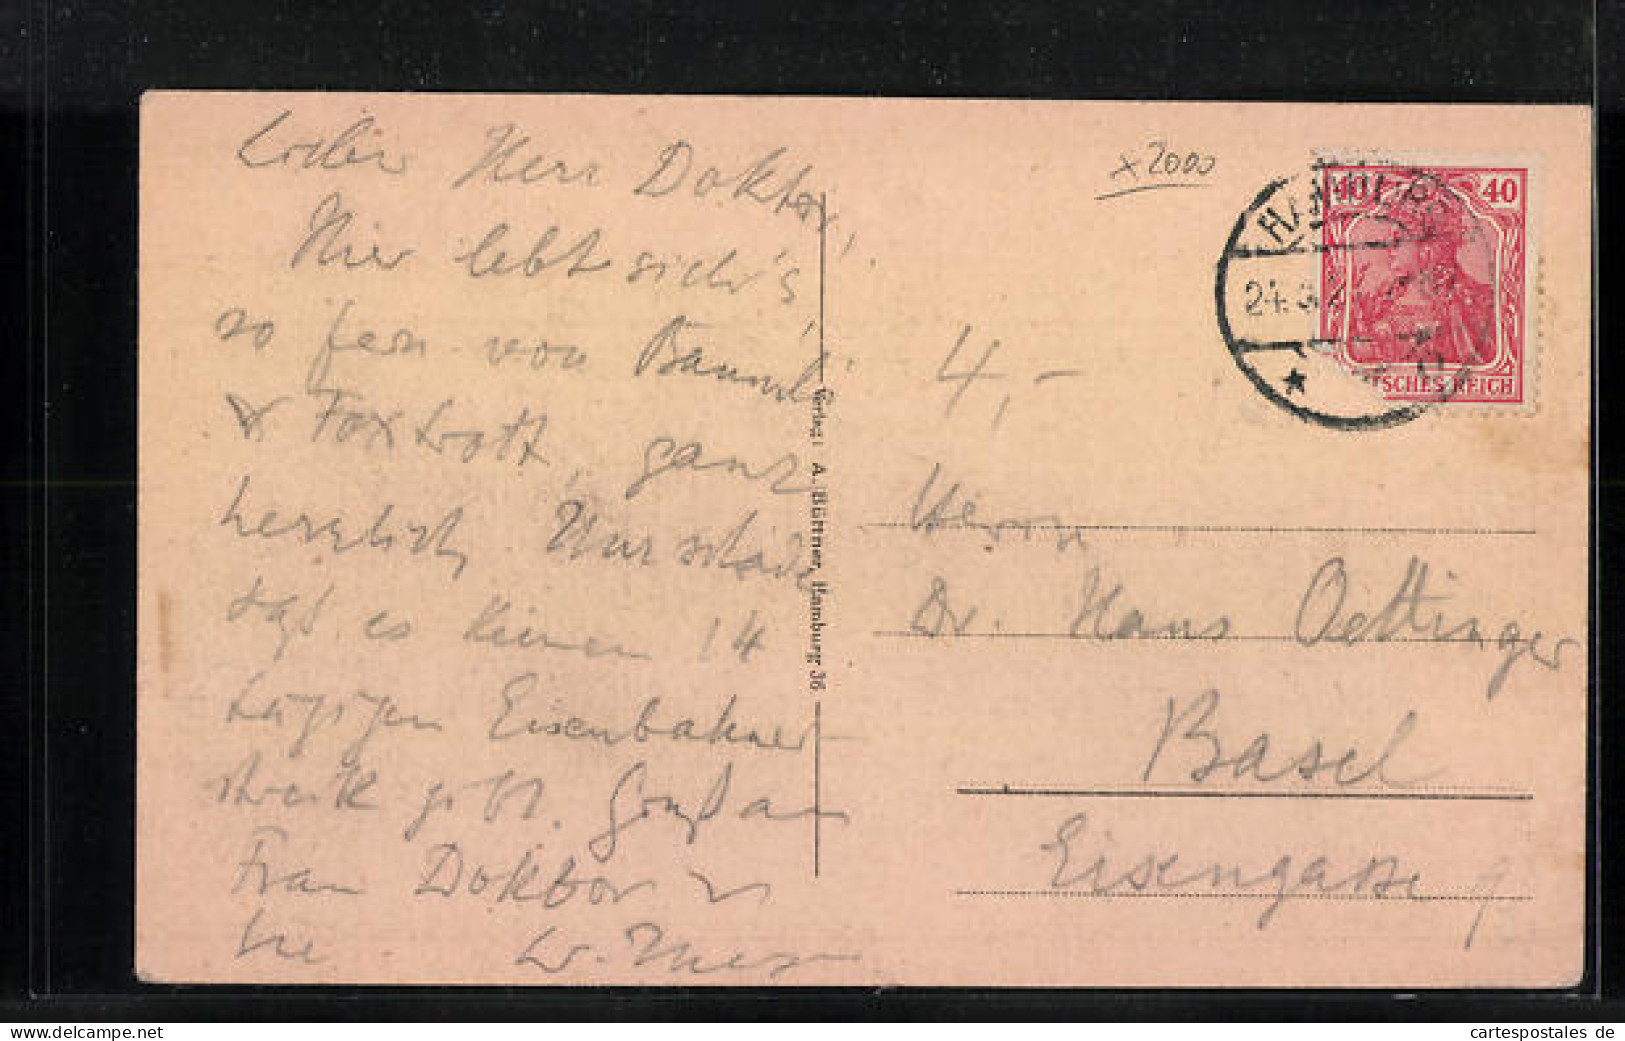 Lieber Herr Doktor,
Hier lebt sich's
so fern von Bauml
& Foxtrott, ganz
herzlich. Nur schade
dass es keinen 14
tägigen Eisenbahner
streik gibt. Gruß an
Frau Doktor u
Sie
x 2000
HAMBURG
24. 3. 2
40 40
DEUTSCHES REICH
4,-
Verlag: A. Büttner, Hamburg 36
Herrn
Dr. Hans Oettinger
Basel
Eisengasse 9
cartespostales de